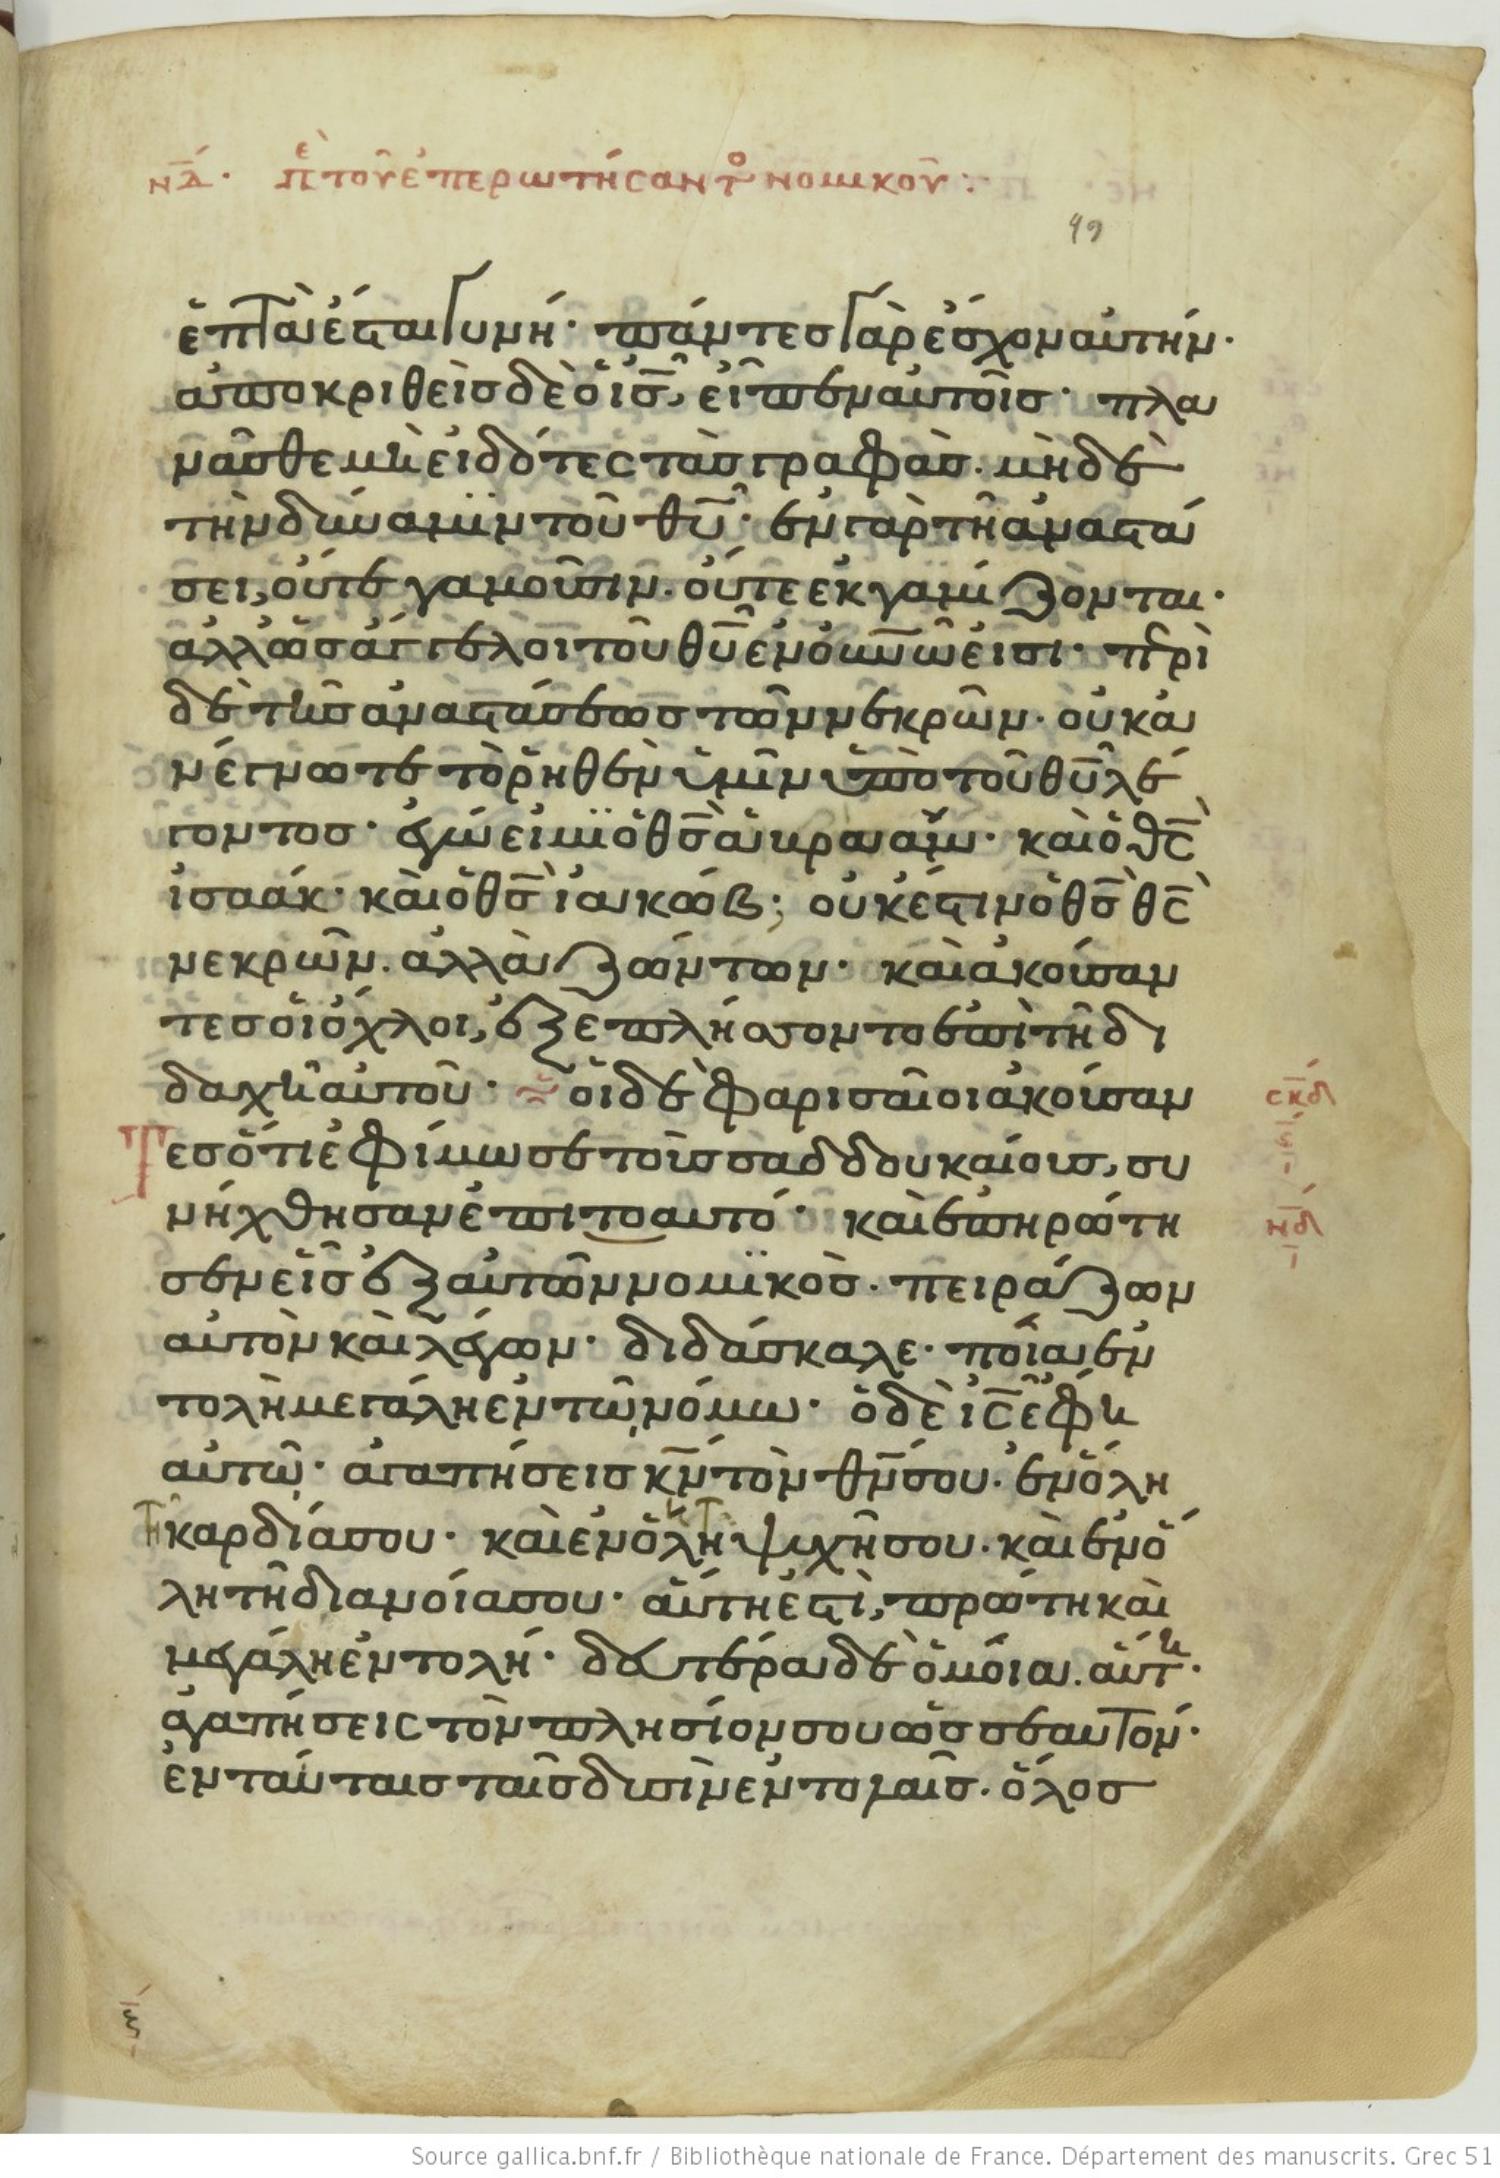 νδ̅. πὲ τοῦ ἐπερωτήσαντο τ κ̅ν̅ νομικοῦ:
49
ἑπτὰ ἔσται γυνή· πάντες γὰρ ἔσχον αὐτήν·
ἀποκριθεὶς δὲ ὁ ι̅ς̅, εἶπεν αὐτοῖς· πλα
νᾶσθε μὴ εἰδότες τὰς γραφάς. μηδὲ
τὴν δύναμϊν τοῦ θ̅υ̅· ἐν γὰρ τῆ ἀναστά
σει, οὔτε γαμοῦσιν. οὔτε ἐκγαμίζονται·
ἀλλ' ὡς ἄγγελοι τοῦ θ̅υ̅ ἐν ο̅υ̅ν̅ω̅ εἰσι· περὶ
δὲ τῆς ἀναστάσεως τῶν νεκρῶν. οὐκ ἀ
νέγνωτε τὸ ῥηθὲν ὑμῖν ὑπὸ τοῦ θ̅υ̅ λέ
γοντος· ἐγώ εἰμϊ ὁ θ̅ς̅ ἀβραάμ· καὶ ὁ θ̅ς̅
ἰσαάκ· καὶ ὁ θ̅ς̅ ἰακώβ; οὐκ ἔστιν ὁ θ̅ς̅ θ̅ς̅
νεκρῶν. ἀλλὰ ζώντων· καὶ ἀκούσαν
τες οἱ ὄχλοι, ἐξεπλήσσοντο ἐπὶ τῆ δι
δαχῆ αὐτοῦ· οἱ δὲ φαρισαῖοι ἀκούσαν
τες ὅτι ἐφίμωσε τοὺς σαδδουκαίους, συ
νήχθησαν ἐπιτοαυτό· καὶ ἐπηρώτη
σεν εἷς ἐξ αὐτῶν νομϊκὸς. πειράζων
αὐτὸν καὶ λέγων· διδάσκαλε· ποία ἐν
τολὴ μεγάλη ἐν τῷ νόμω· ὁ δὲ ι̅ς̅ ἔφη
αὐτῷ· ἀγαπήσεις κ̅ν̅ τὸν θ̅ν̅ σου. ἐν ὅλη
τῆ καρδία σου· καὶ ἐν ὅλη τῆ ψυχῆ σου. καὶ ἐν ὅ
λη τῆ διανοία σου· αὕτη ἐστὶ, πρώτη καὶ
μεγάλη ἐντολή· δευτέρα δὲ ὁμοία. αὕτη·
ἀγαπήσεις τὸν πλησίον σου ὡς σεαυτόν·
ἐν ταύταις ταῖς δυσὶν ἐντολαῖς. ὅλος
σκδ
ϛ
νδ
ξ
Source gallica.bnf.fr / Bibliothèque nationale de France. Département des manuscrits. Grec 51